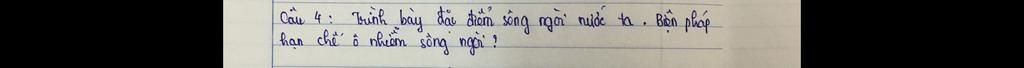 Câu 4 : Trình bày đặc điểm sông ngòi nước ta. Biện pháp
hạn chế ô nhiễm sông ngòi ?